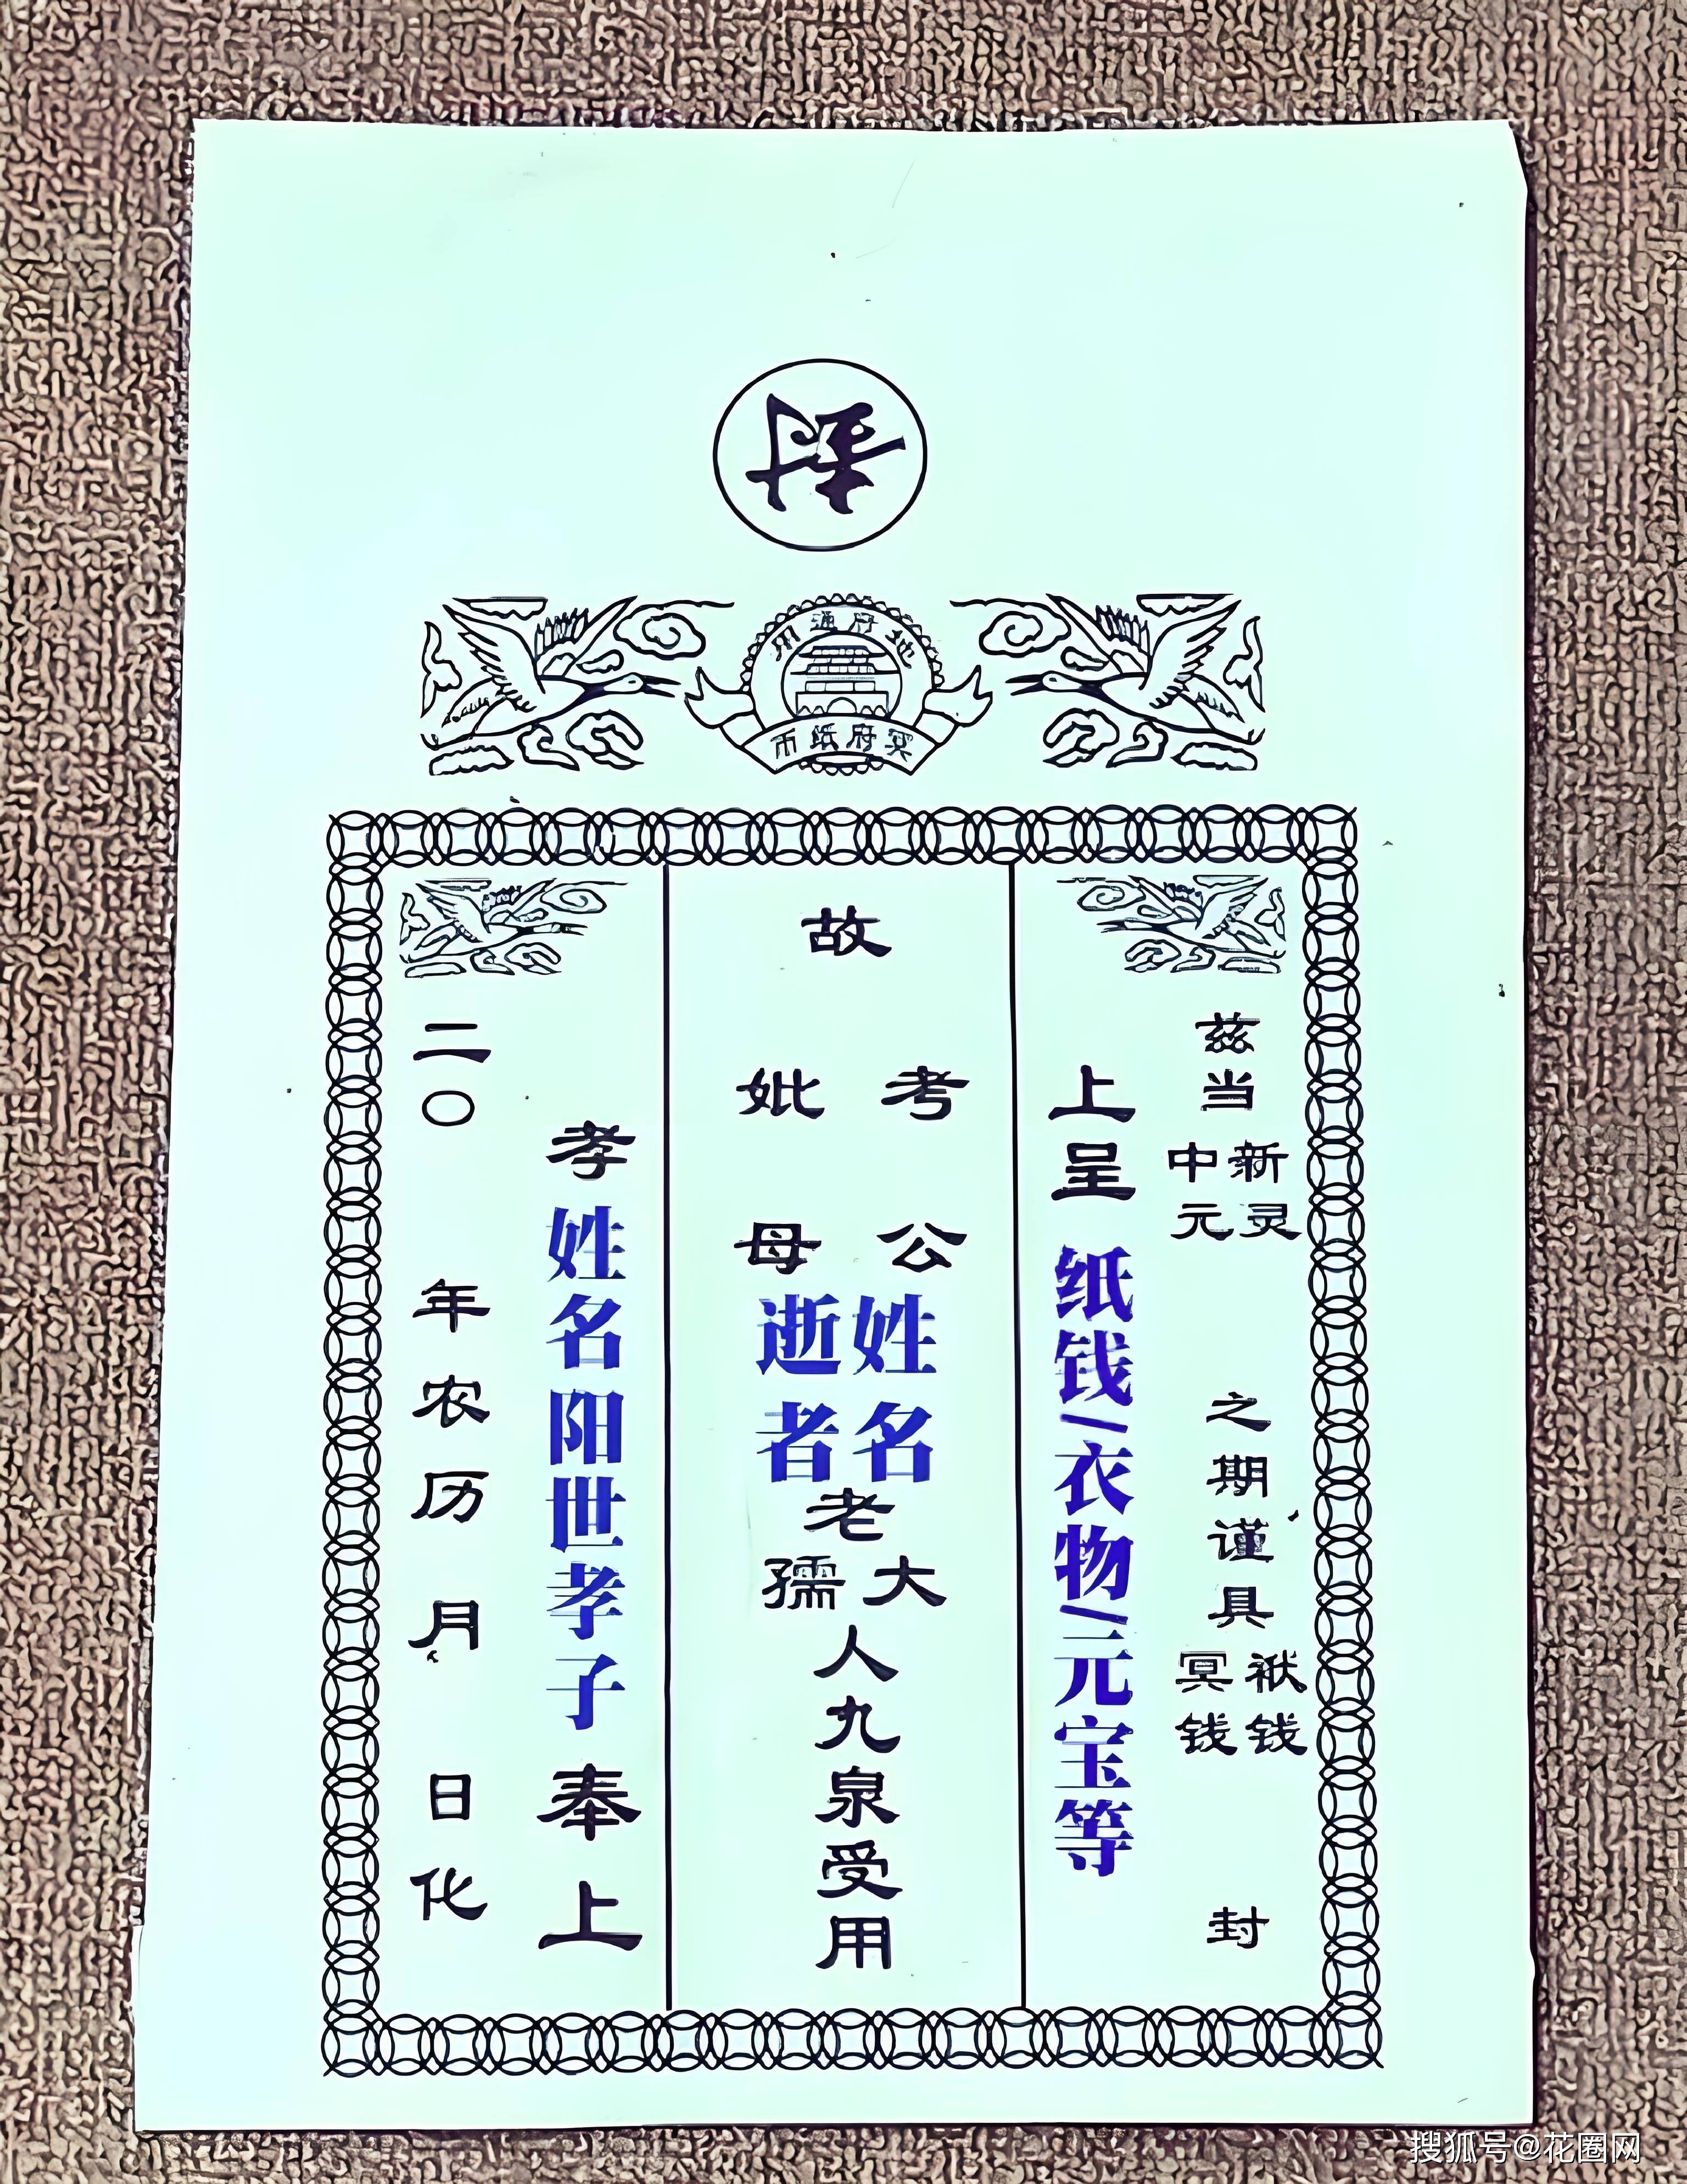 地府通用
冥府纸币
兹当新灵中元之期谨具袱钱冥钱封
上呈纸钱/衣物/元宝等
故考妣公母姓名逝者老大孺人九泉受用
孝姓名阳世孝子奉上
二〇 年农历 月 日化
搜狐号@花圈网